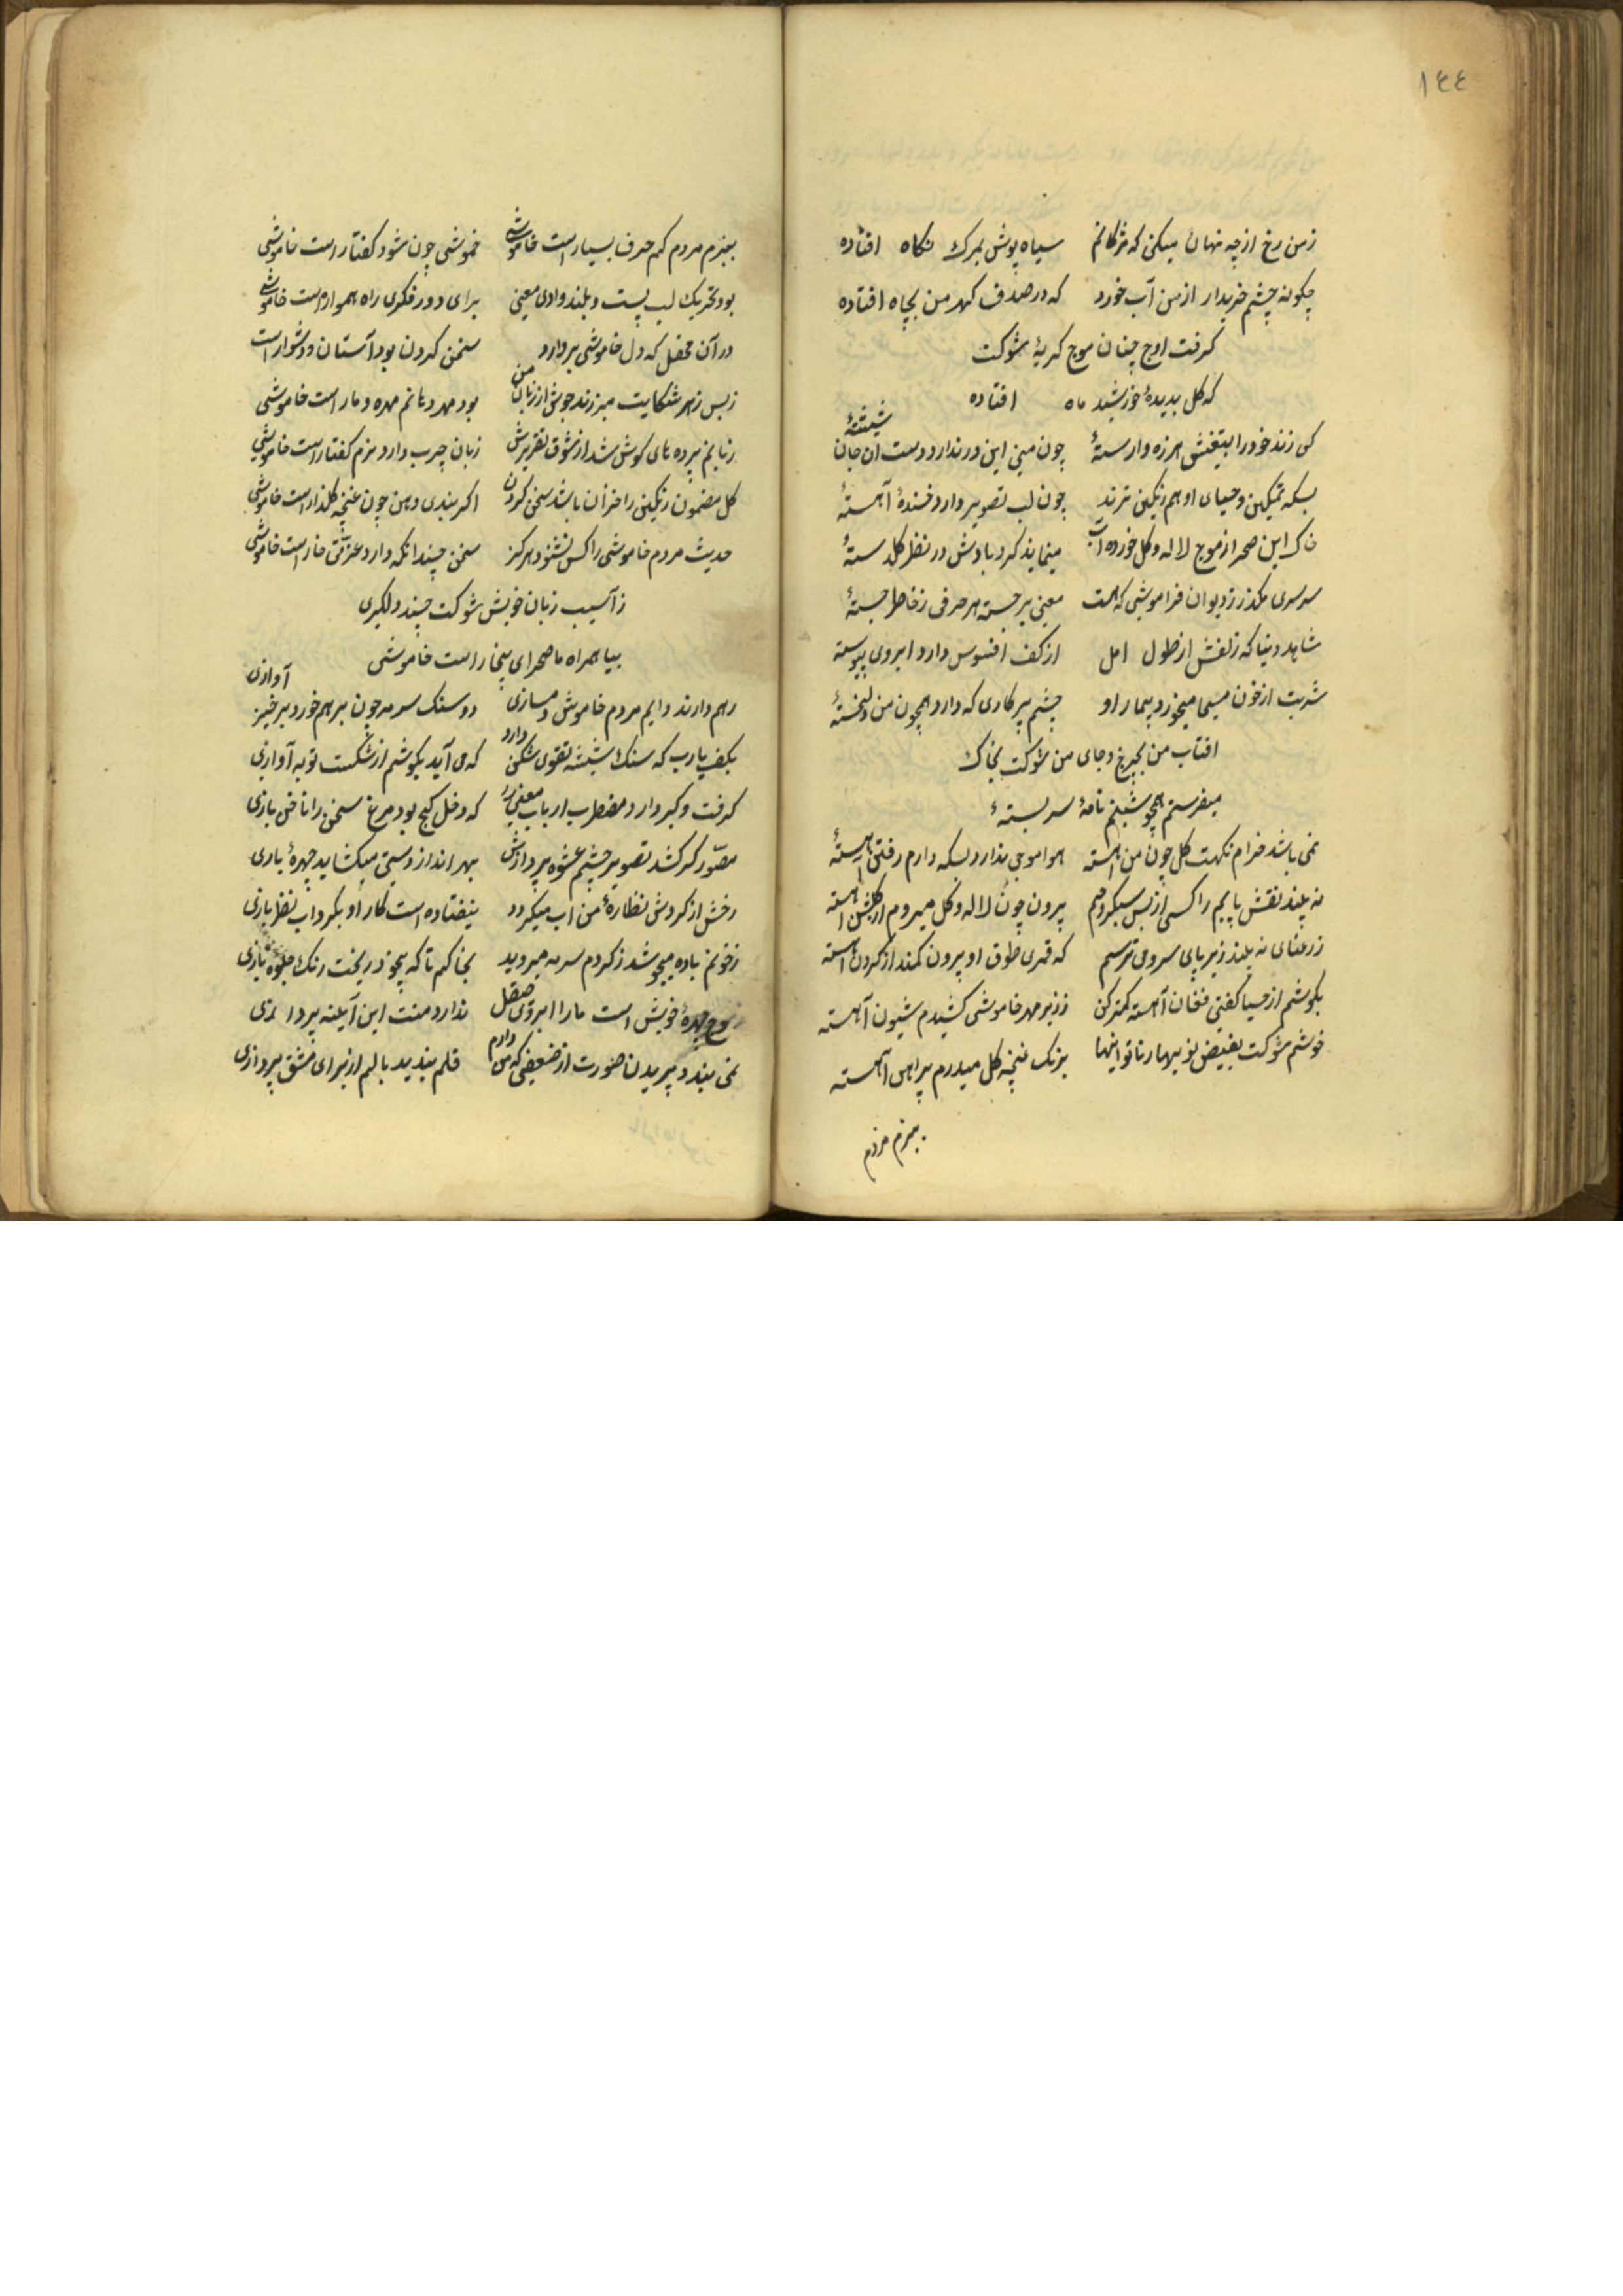 ١٤٤
زمن رخ از چه نهان میکنی که مژکانم سیاه پوش بمرک نکاه افتاده
چکونه چشم خریدار از من آب خورد که در صدف کهر من بچاه افتاده
کرفت اوج چنان موج کریهٔ شوکت
که کل بدیدهٔ خورشید ماه افتاده
کی زند خود را بتیغش هرزه وارستهٔ چون منی این در ندارد دست از جان شستهٔ
بسکه تمکین و حیای او بهم رنکین ترند چون لب تصویر دارد خندهٔ آهستهٔ
خاک این صحرا ز موج لاله و کل خورده آب مینماید کردبادش در نظر کلدستهٔ
سرسری مکذر ز دیوان فراموشی که هست معنی برجسته هر حرفی ز خاطر جستهٔ
شاهد دنیا که زلفش از طول امل از کف افسوس دارد ابروی پیوستهٔ
شربت از خون مسیحا میخورد بیمار او چشم پرکاری که دارد همچون من دلخستهٔ
افتاب من بچرخ و جای من شوکت بخاک
میفرستم همچو شبنم نامهٔ سربستهٔ
نمی باشد خرام نکهت کل چون من آهسته هوا موجی ندارد بسکه دارم رفتن آهسته
نه بیند نقش پایم را کسی از بس سبکروحم برون چون لاله و کل میروم از کلشن آهسته
ز رعنای نه بیند زیر پای سرو می ترسم که قمری طوق او بیرون کمند از کردن آهسته
بکوشم از حیا کفتی فغان آهسته کمتر کن ز زیر مهر خاموشی کشیدم شیون آهسته
خوشم شوکت بفیض نوبهار ناتوانیها برنک غنچهٔ کل میدرم پیراهن آهسته
ببزم مردم
ببزم مردم کم حرف بسیار است خاموشی خموشی چون شود کفتار است خاموشی
بود تحریک لب پست و بلند وادی معنی برای دور فکری راه هموار است خاموشی
در آن محفل که دل خاموشی بردارد سخن کردن بود آسان و دشوار است
ز بس زهر شکایت میزند جوش از زبان من بود مهر دهانم مهره و مار است خاموشی
زبانم پرده های کوش شد از شوق تقریرش زبان چرب دارد نرم کفتار است خاموشی
کل مضمون رنکین را خزان باشد سخن کردن اکر بندی دهن چون غنچه کلزار است خاموشی
حدیث مردم خاموشی را کس نشنود هرکز سخن چندانکه دارد عزتی خار است خاموشی
ز آسیب زبان خویش شوکت چند دلکیری
بیا همراه ما صحرای بیخار است خاموشی
بهم دارند دایم مردم خاموش دمسازی دو سنک سرمه چون بر هم خورد برخیزد آوازی
بکف یارب که سنک شیشه تقوی شکن دارد که می آید بکوشم از شکست توبه آوازی
کرفت و کیر دارد مضطرب ارباب معنی را که دخل کج بود مرغ سخن را ناخن بازی
مصور کر کشد تصویر چشم عشوه پردازش بهر انداز دستی میکشاید چهرهٔ بازی
رخش از کردش نظارهٔ من آب میکردد نیفتاده است کار او بکرداب نظر بازی
ز خونم باده میجوشد ز کردم سرمه میروید بخاکم تا که بیخود ریخت رنک جلوهٔ نازی
چهرهٔ خویش است ما را ابروی صیقل ندارد منت این آینه پردازی
نمی بندد پریدن صورت از ضعفی که من دارم قلم بندید بالم از برای مشق پروازی